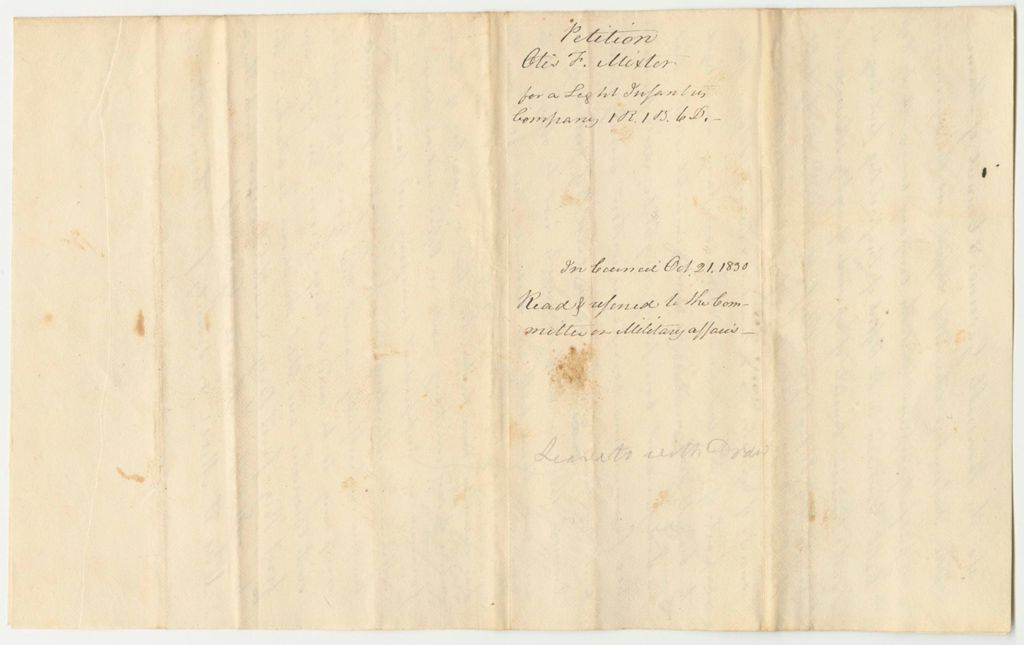 Petition
Otis F. Mixter
for a Light Infantry
Company 1 R. 1 B. 6 D. —
In Council Oct. 21. 1830
Read & referred to the Com-
mittee on Military affairs —
Leave to with Draw